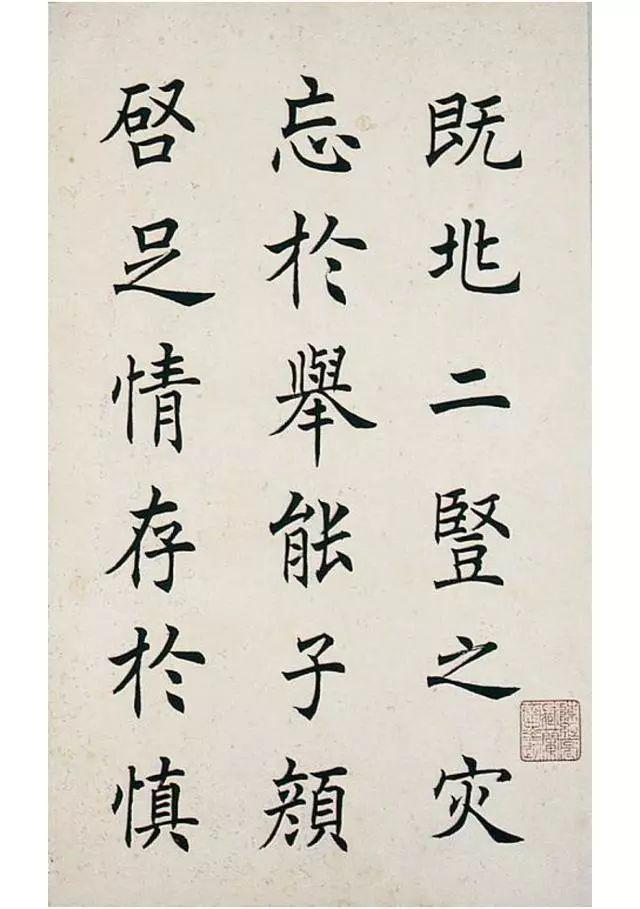 既兆二豎之灾
忘於舉能子顏
啓足情存於慎